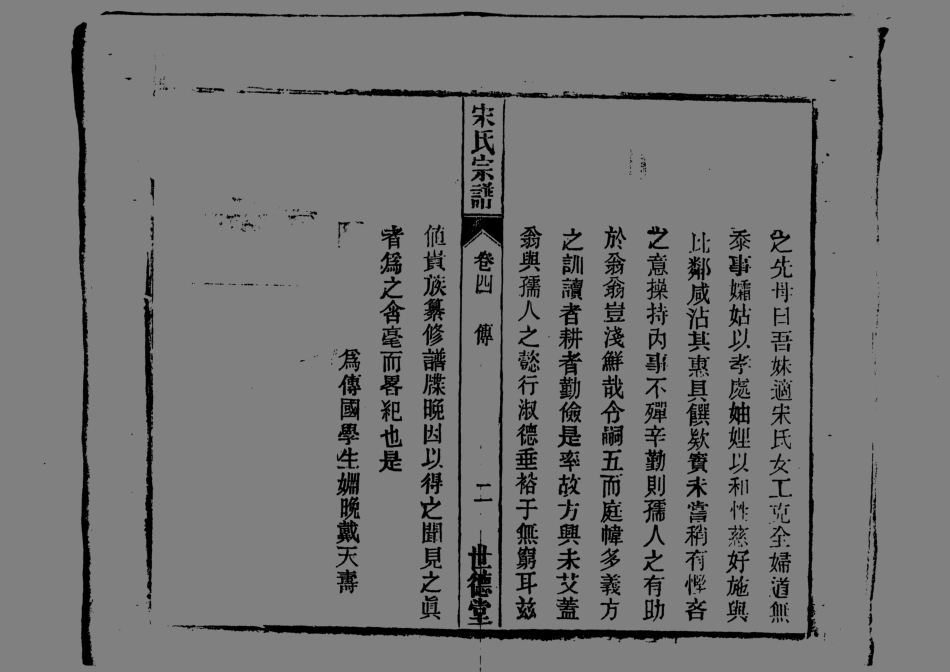 之先母曰吾妹適宋氏女工克全婦道無
忝事孀姑以孝處妯娌以和性慈好施與
比鄰咸沾其惠具饌欵賓未嘗稍有慳吝
之意操持內事不殫辛勤則孺人之有助
於翁翁豈淺鮮哉令嗣五而庭幃多義方
之訓讀者耕者勤儉是率故方興未艾蓋
翁與孺人之懿行淑德垂裕于無窮耳茲
宋氏宗譜
卷四 傳
二
世德堂
値貴族纂修譜牒晚因以得之聞見之眞
者爲之含毫而畧紀也是
爲傳國學生姻晚戴天壽